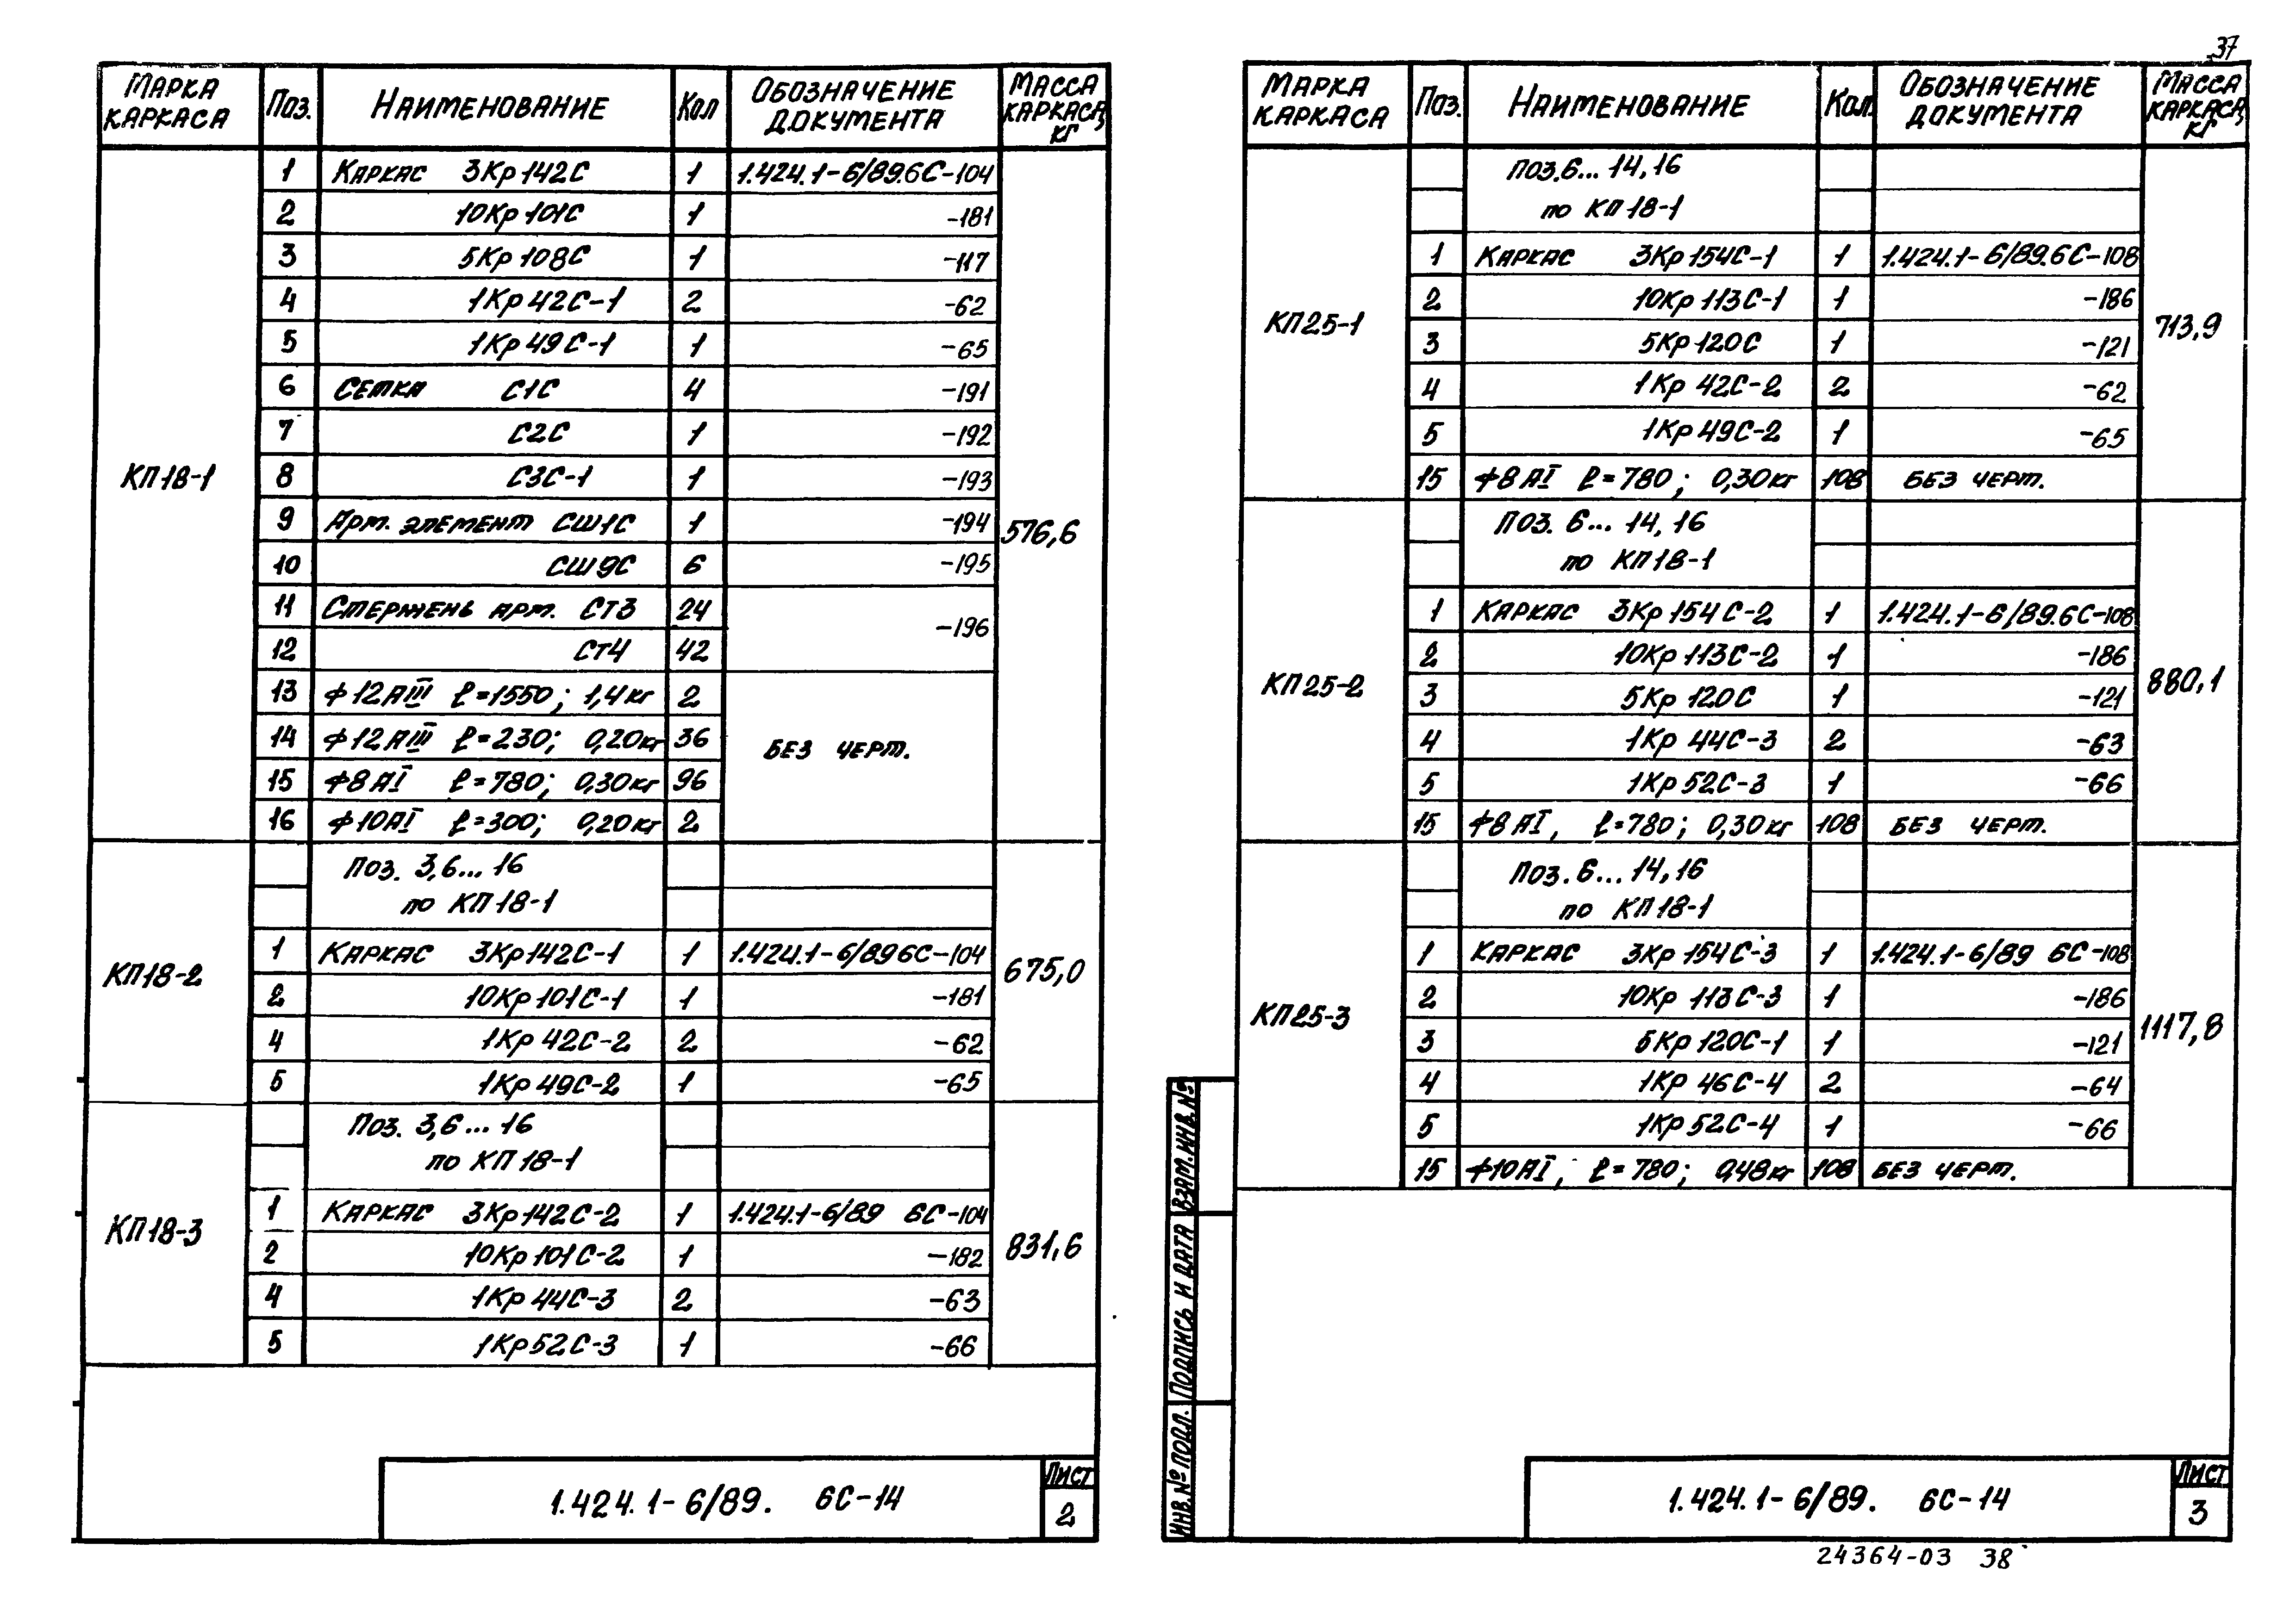 37
Марка каркаса | Поз. | Наименование | Кол | Обозначение документа | Масса каркаса, кг
КП18-1 | 576,6
1 | Каркас 3Кр142С | 1 | 1.424.1-6/89.6С-104
2 | 10Кр101С | 1 | -181
3 | 5Кр108С | 1 | -117
4 | 1Кр42С-1 | 2 | -62
5 | 1Кр49С-1 | 1 | -65
6 | Сетка С1С | 4 | -191
7 | С2С | 1 | -192
8 | С3С-1 | 1 | -193
9 | Арм. элемент СШ1С | 1 | -194
10 | СШ9С | 6 | -195
11 | Стержень арм. СТ3 | 24 | -196
12 | СТ4 | 42
13 | Ф12АIII ℓ=1550; 1,4кг | 2 | без черт.
14 | Ф12АIII ℓ=230; 0,20кг | 36
15 | Ф8АI ℓ=780; 0,30кг | 96
16 | Ф10АI ℓ=300; 0,20кг | 2
КП18-2 | 675,0
Поз. 3,6... 16
по КП18-1
1 | Каркас 3Кр142С-1 | 1 | 1.424.1-6/89 6С-104
2 | 10Кр101С-1 | 1 | -181
4 | 1Кр42С-2 | 2 | -62
5 | 1Кр49С-2 | 1 | -65
КП18-3 | 831,6
Поз. 3,6... 16
по КП18-1
1 | Каркас 3Кр142С-2 | 1 | 1.424.1-6/89 6С-104
2 | 10Кр101С-2 | 1 | -182
4 | 1Кр44С-3 | 2 | -63
5 | 1Кр52С-3 | 1 | -66
1.424.1-6/89. 6С-14
Лист
2
Марка каркаса | Поз. | Наименование | Кол. | Обозначение документа | Масса каркаса, кг
КП25-1 | 713,9
Поз.6... 14,16
по КП18-1
1 | Каркас 3Кр154С-1 | 1 | 1.424.1-6/89.6С-108
2 | 10Кр113С-1 | 1 | -186
3 | 5Кр120С | 1 | -121
4 | 1Кр42С-2 | 2 | -62
5 | 1Кр49С-2 | 1 | -65
15 | Ф8АI ℓ=780; 0,30кг | 108 | без черт.
КП25-2 | 880,1
Поз. 6... 14,16
по КП18-1
1 | Каркас 3Кр154С-2 | 1 | 1.424.1-6/89.6С-108
2 | 10Кр113С-2 | 1 | -186
3 | 5Кр120С | 1 | -121
4 | 1Кр44С-3 | 2 | -63
5 | 1Кр52С-3 | 1 | -66
15 | Ф8АI, ℓ=780; 0,30кг | 108 | без черт.
КП25-3 | 1117,8
Поз.6...14,16
по КП18-1
1 | Каркас 3Кр154С-3 | 1 | 1.424.1-6/89 6С-108
2 | 10Кр113С-3 | 1 | -186
3 | 5Кр120С-1 | 1 | -121
4 | 1Кр46С-4 | 2 | -64
5 | 1Кр52С-4 | 1 | -66
15 | Ф10АI, ℓ=780; 0,48кг | 108 | без черт.
Взам.инв.№
Подпись и дата
Инв.№ подл.
1.424.1-6/89. 6С-14
Лист
3
24364-03 38